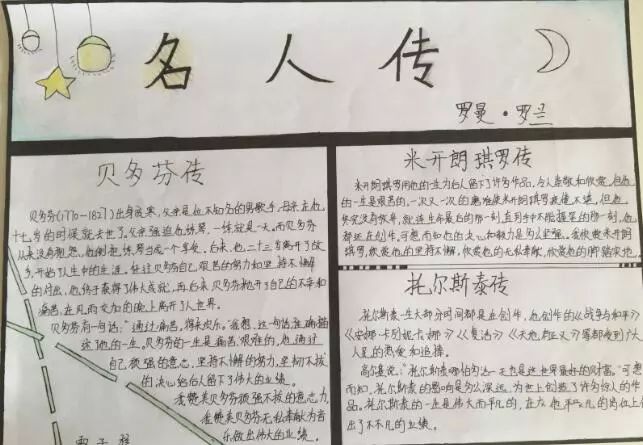 名人传
罗曼·罗兰
贝多芬传
贝多芬(1770-1827)出身贫寒，父亲是也不知名的男歌手，母亲在他
十七岁的时候就去世了。父亲强迫他练琴，一练就是一天，而贝多芬
从来没有怨恨，他倒把练琴当成一个享受，后来，他二十二岁离开了故
乡，开始了人生中的生涯，往往贝多芬自己艰苦的努力和坚持不懈
的付出，他终于获得了伟大成就，再后来贝多芬抛开了自己的不幸和
痛苦，在风雨交加的晚上离开了人世界。
贝多芬有一句话："通过痛苦，得来欢乐。"我想，这句话在确描
述了他的一生。贝多芬的一生是痛苦艰难的，他通过
自己顽强的意志，坚持不懈的努力，坚韧不拔
的决心给后人留下了伟大的业绩。
我赞美贝多芬顽强不拔的意志力，
我赞美贝多芬无私奉献为音
乐做出伟大的业绩。
米开朗琪罗传
米开朗琪罗用他的一生为后人留下了许多作品，令人羡敬和欣赏，但他
的一生是艰苦的，一次又一次的患难使米开朗琪罗疲倦不堪，但他
终究没有放弃，就连生命最后的那一刻，直到手中不能握笔的那一刻，他
都还在创作，可想而知他的决心和毅力是多么坚强。我欣赏米开朗琪
罗，欣赏他的坚持不懈，欣赏他的无私奉献，欣赏他的脚踏实地。
托尔斯泰传
托尔斯泰一生大部分时间都是在创作，他创作的《战争与和平》
《安娜·卡列妮卡娜》《复活》《天地有正义》等都收到广大
人民的热爱和追捧。
高尔基说："托尔斯泰哪怕匀活一天也是这世界最好的财富。"可想
而知，托尔斯泰的影响是多么深远，为世上创造了许多惊人的作
品。托尔斯泰的一生是伟大而平凡的，在在他平凡的岗位上创
出了不平凡的业绩。